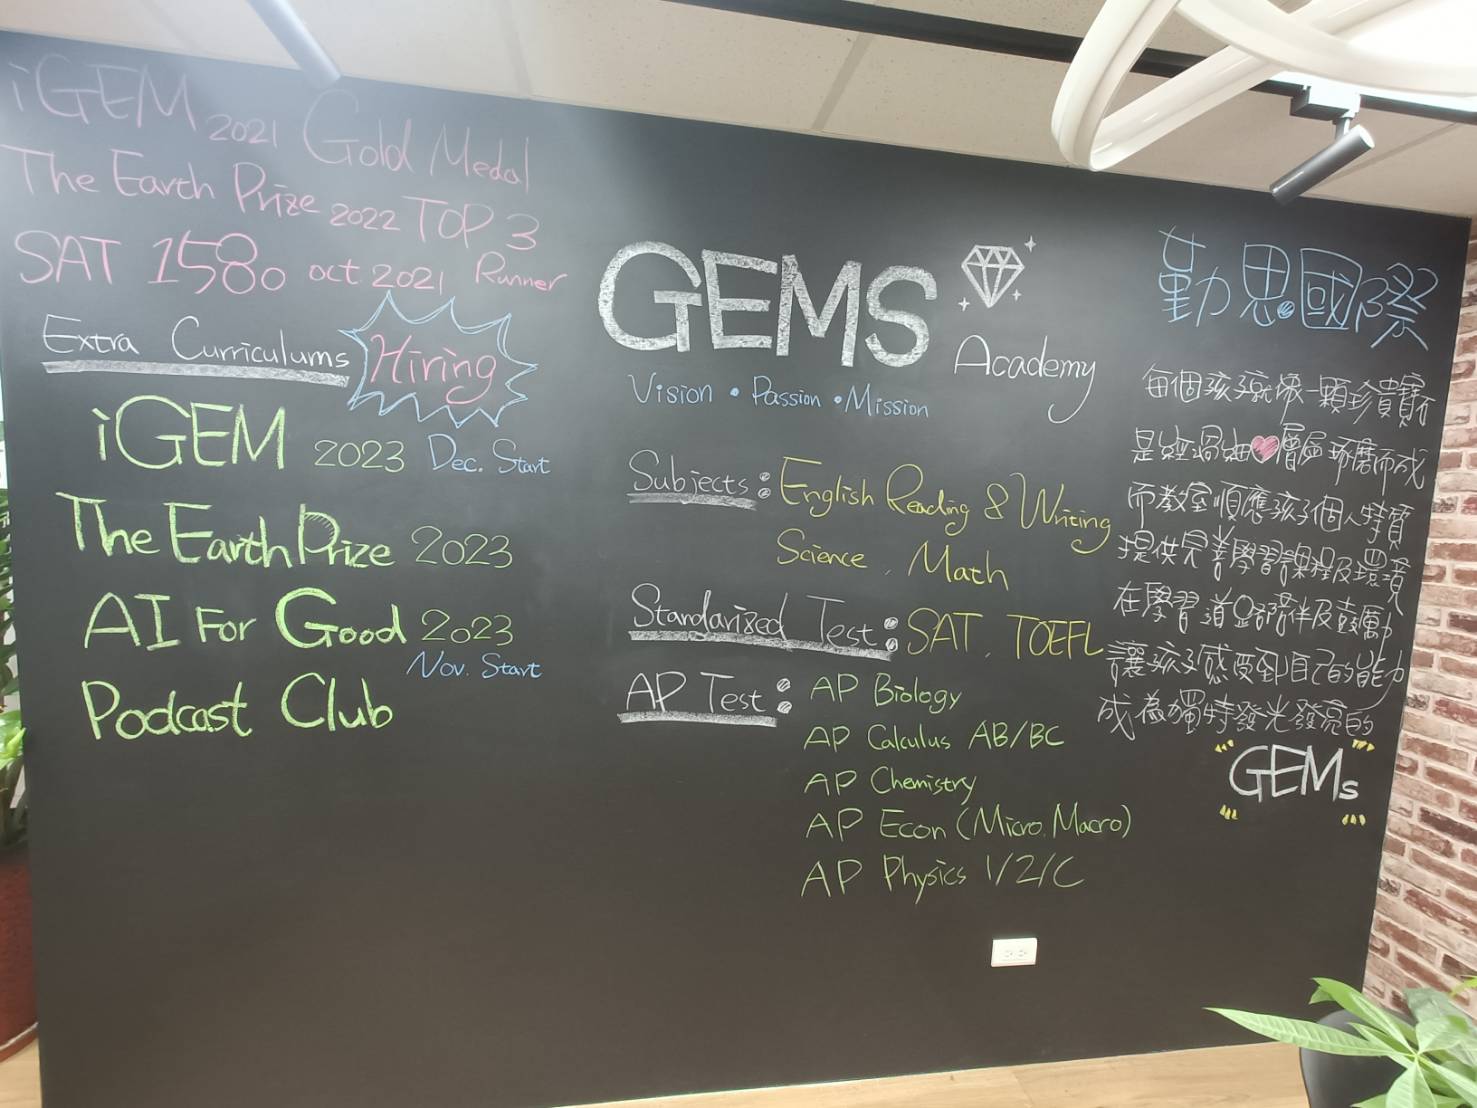 iGEM 2021 Gold Medal
The Earth Prize 2022 TOP 3
SAT 1580 oct 2021 Runner
Extra Curriculums
Hiring
iGEM 2023 Dec. Start
The Earth Prize 2023
AI For Good 2023
Nov. Start
Podcast Club
GEMS
Academy
Vision • Passion • Mission
Subjects: English Reading & Writing
Science, Math
Standarized Test: SAT, TOEFL
AP Test: AP Biology
AP Calculus AB/BC
AP Chemistry
AP Econ (Micro, Macro)
AP Physics 1/2/C
勤思國際
每個孩子就像一顆珍貴寶石
是經過細♥層層琢磨而成
而教室順應孩子個人特質
提供完善學習課程及環境
在學習道路陪伴及鼓勵
讓孩子感受到自己的能力
成為獨特發光發亮的
GEMs